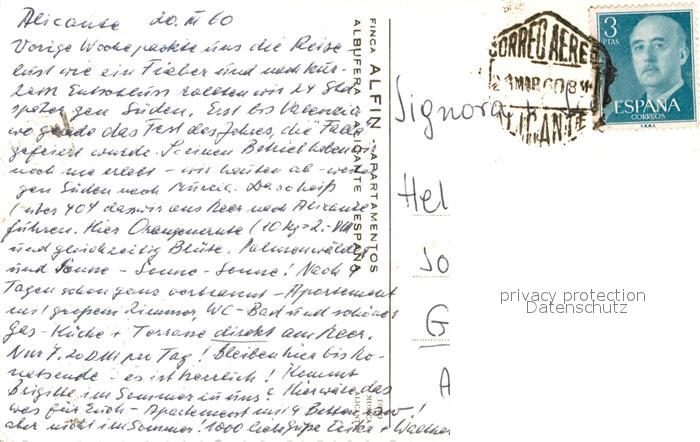 Alicante 20.III 60
Vorige Woche packte uns die Reise-
lust wie ein Fieber und nach kur-
zem Entschluss rollten wir 24 Std
später gen Süden. Erst bis Valencia
wo grade das Fest des Jahres, die "Falla"
gefeiert wurde. So einen Betrieb haben wir
noch nie erlebt - wir hauten ab - weiter
gen Süden nach Murcia. Da so heiß
(über 40° dass wir ans Meer nach Alicante
fuhren. Hier Orangenernte (10 kg = 2.- DM
und gleichzeitig Blüte. Palmenwälder
und Sonne - Sonne - Sonne! Nach 4
Tagen schon ganz verbrannt - Apartement
mit großem Zimmer, WC - Bad und schöner
Gas-Küche + Terrasse direkt am Meer.
Nur 7.20 DM pro Tag! Bleiben hier bis Mo-
natsende - es ist herrlich! Kommt
Brigitte im Sommer zu uns? Hier wäre das
was für Euch - Apartement mit 4 Betten usw!
aber nicht im Sommer! 1000 Grüße Euter + Walther
FINCA ALFIN - APARTAMENTOS
ALBUFERA - ALICANTE - ESPAÑA
FOTO
ALICANTE
CORREO AEREO
21 MAR 60 8M
ALICANTE
3
PTAS
ESPAÑA
CORREOS
F.N.M.T.
Signora +
Hel
So
G
A
privacy protection
Datenschutz